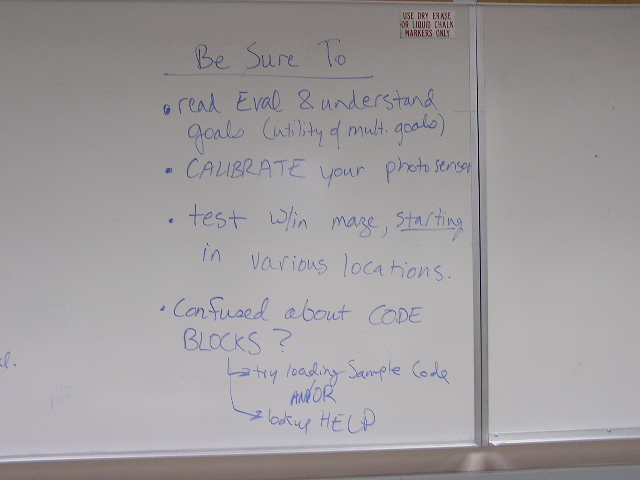 USE DRY ERASE
OR LIQUID CHALK
MARKERS ONLY
Be Sure To
• read Eval & understand
goals (utility of mult. goals)
• CALIBRATE your photosensor
• test w/in maze, starting
in various locations.
• Confused about CODE
BLOCKS?
→ try loading Sample Code
AND/OR
→ lookup HELP